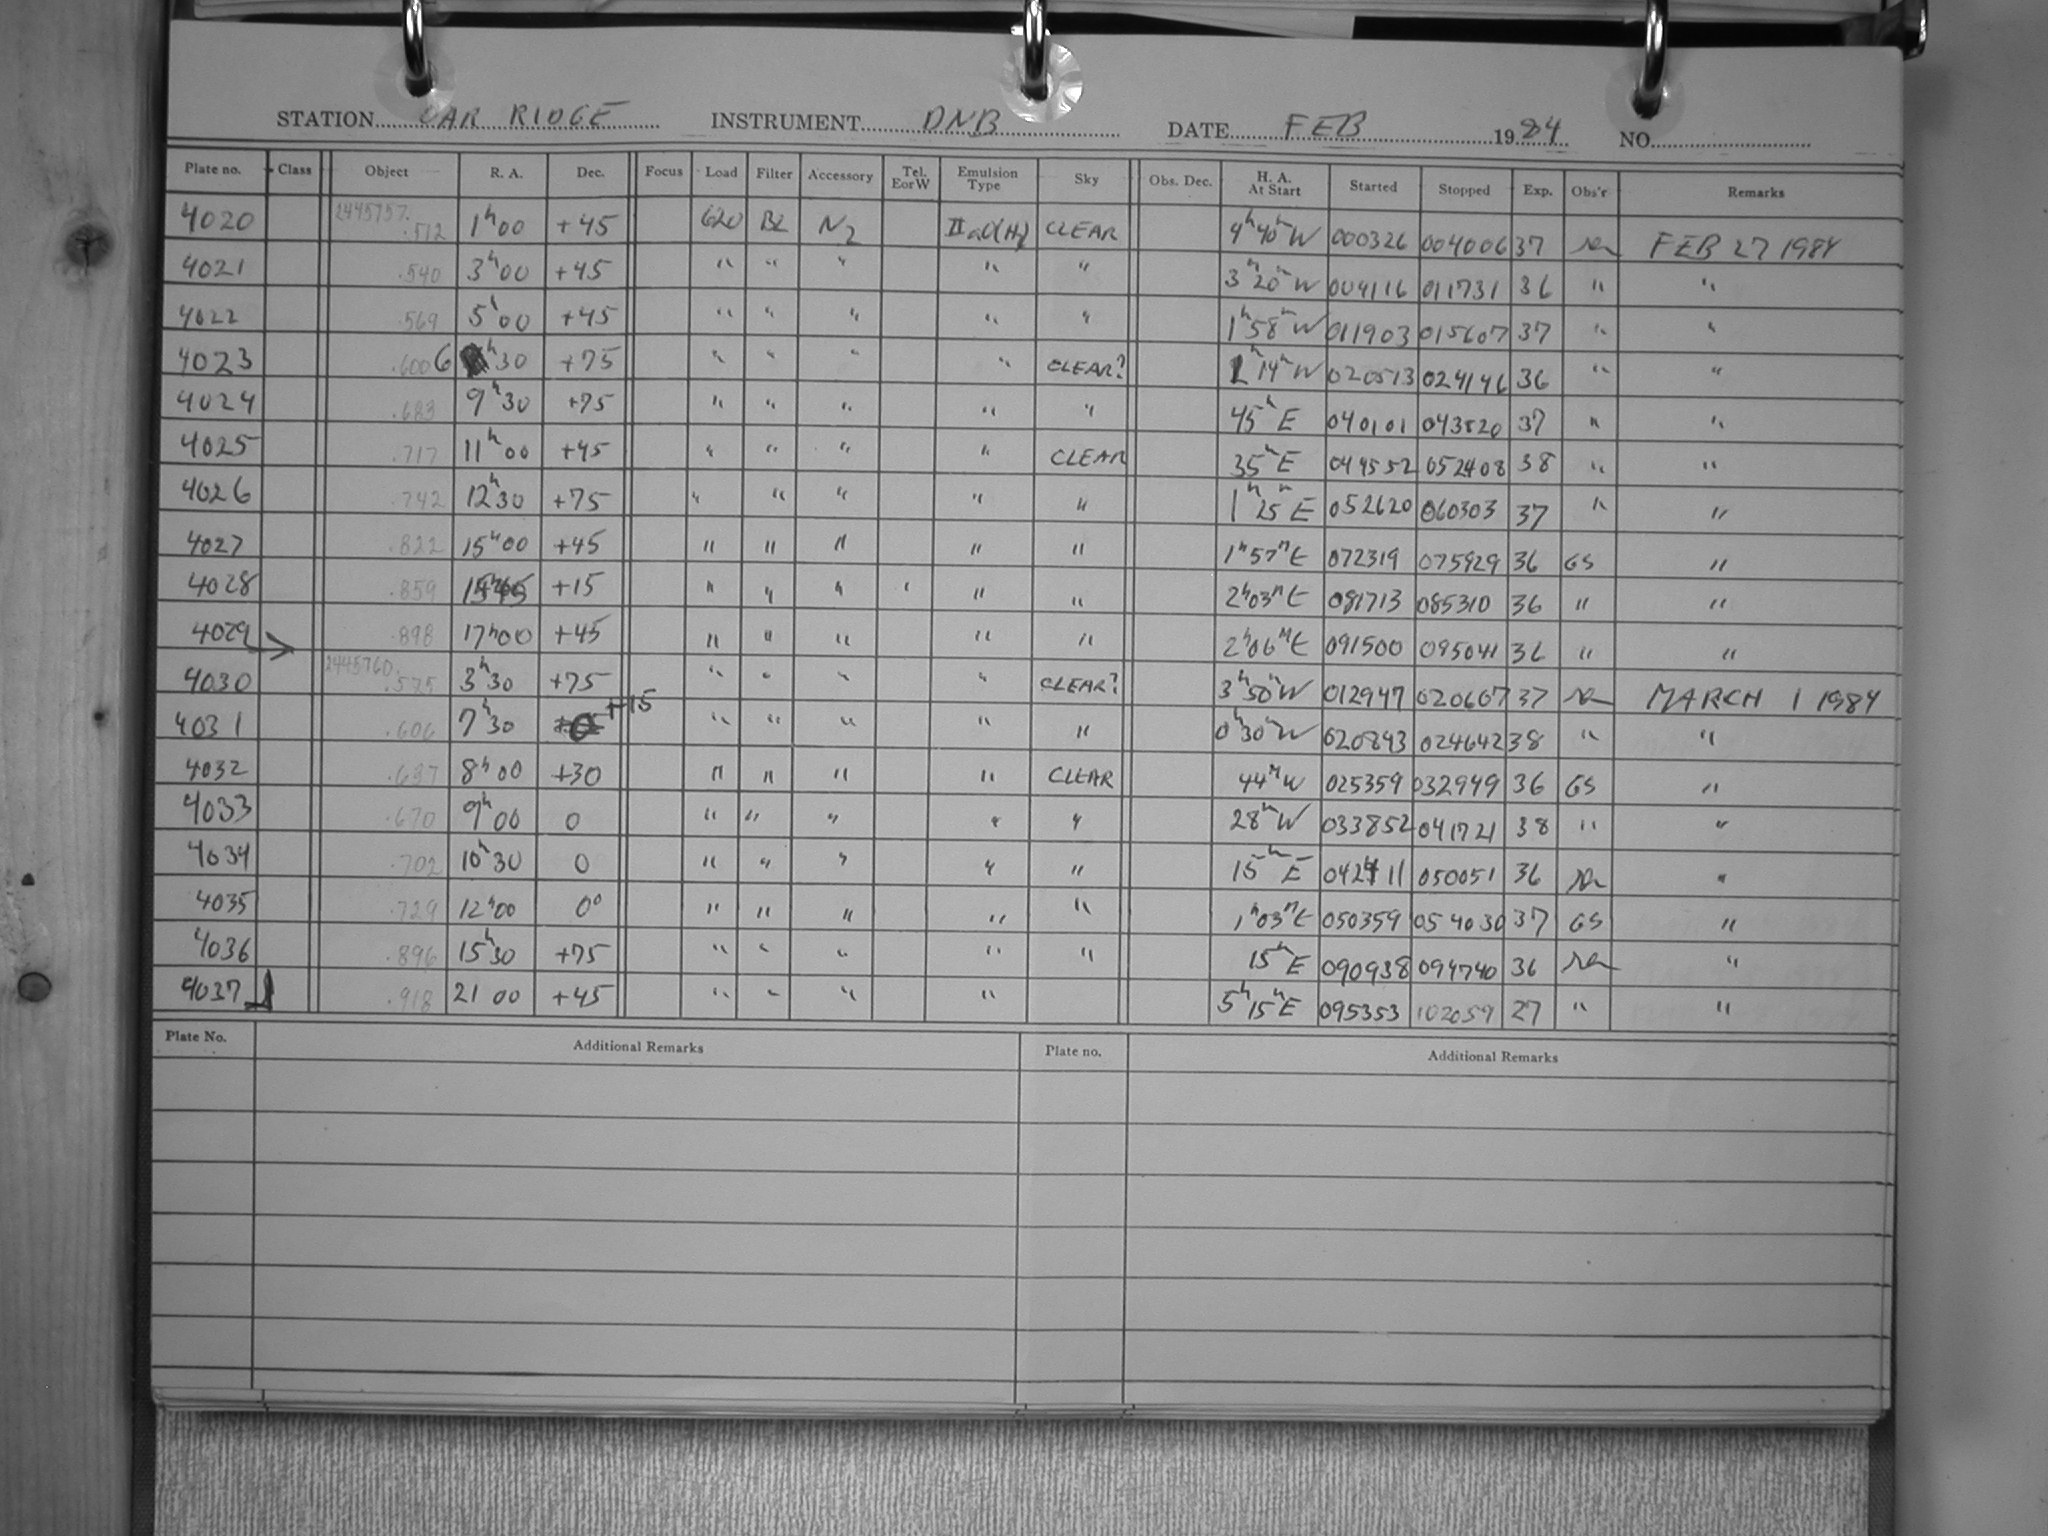 STATION OAK RIDGE INSTRUMENT DNB DATE FEB 1984 NO.
Plate no. Class Object R. A. Dec. Focus Load Filter Accessory Tel. E or W Emulsion Type Sky Obs. Dec. H. A. At Start Started Stopped Exp. Obs'r Remarks
4020 2445757.512 1h00 +45 620 BL N2 IIaO(H2) CLEAR 4h40mW 000326 004006 37 FEB 27 1984
4021 .540 3h00 +45 " " " " " 3h20mW 004116 011731 36 " "
4022 .569 5h00 +45 " " " " " 1h58mW 011903 015607 37 " "
4023 .600 6h30 +75 " " " " CLEAR? 1h14mW 020513 024146 36 " "
4024 .683 9h30 +75 " " " " " 45mE 040101 043820 37 " "
4025 .717 11h00 +45 " " " " CLEAR 35mE 044552 052408 38 " "
4026 .742 12h30 +75 " " " " " 1h25mE 052620 060303 37 " "
4027 .822 15h00 +45 " " " " " 1h57mE 072319 075929 36 GS "
4028 .859 +15 " " " ' " " 2h03mE 081713 085310 36 " "
4029 .898 17h00 +45 " " " " " 2h06mE 091500 095041 36 " "
4030 2445760.575 3h30 +75 " " " " CLEAR? 3h50mW 012947 020607 37 MARCH 1 1984
4031 .606 7h30 +15 " " " " " 0h30mW 020843 024642 38 " "
4032 .637 8h00 +30 " " " " CLEAR 44mW 025359 032949 36 GS "
4033 .670 9h00 0 " " " " " 28mW 033852 041721 38 " "
4034 .702 10h30 0 " " " " " 15mE 042411 050051 36 "
4035 .729 12h00 0° " " " " " 1h03mE 050359 054030 37 GS "
4036 .896 15h30 +75 " " " " " 15mE 090938 094740 36 "
4037 .918 21 00 +45 " " " " 5h15mE 095353 102059 27 " "
Plate No. Additional Remarks Plate no. Additional Remarks